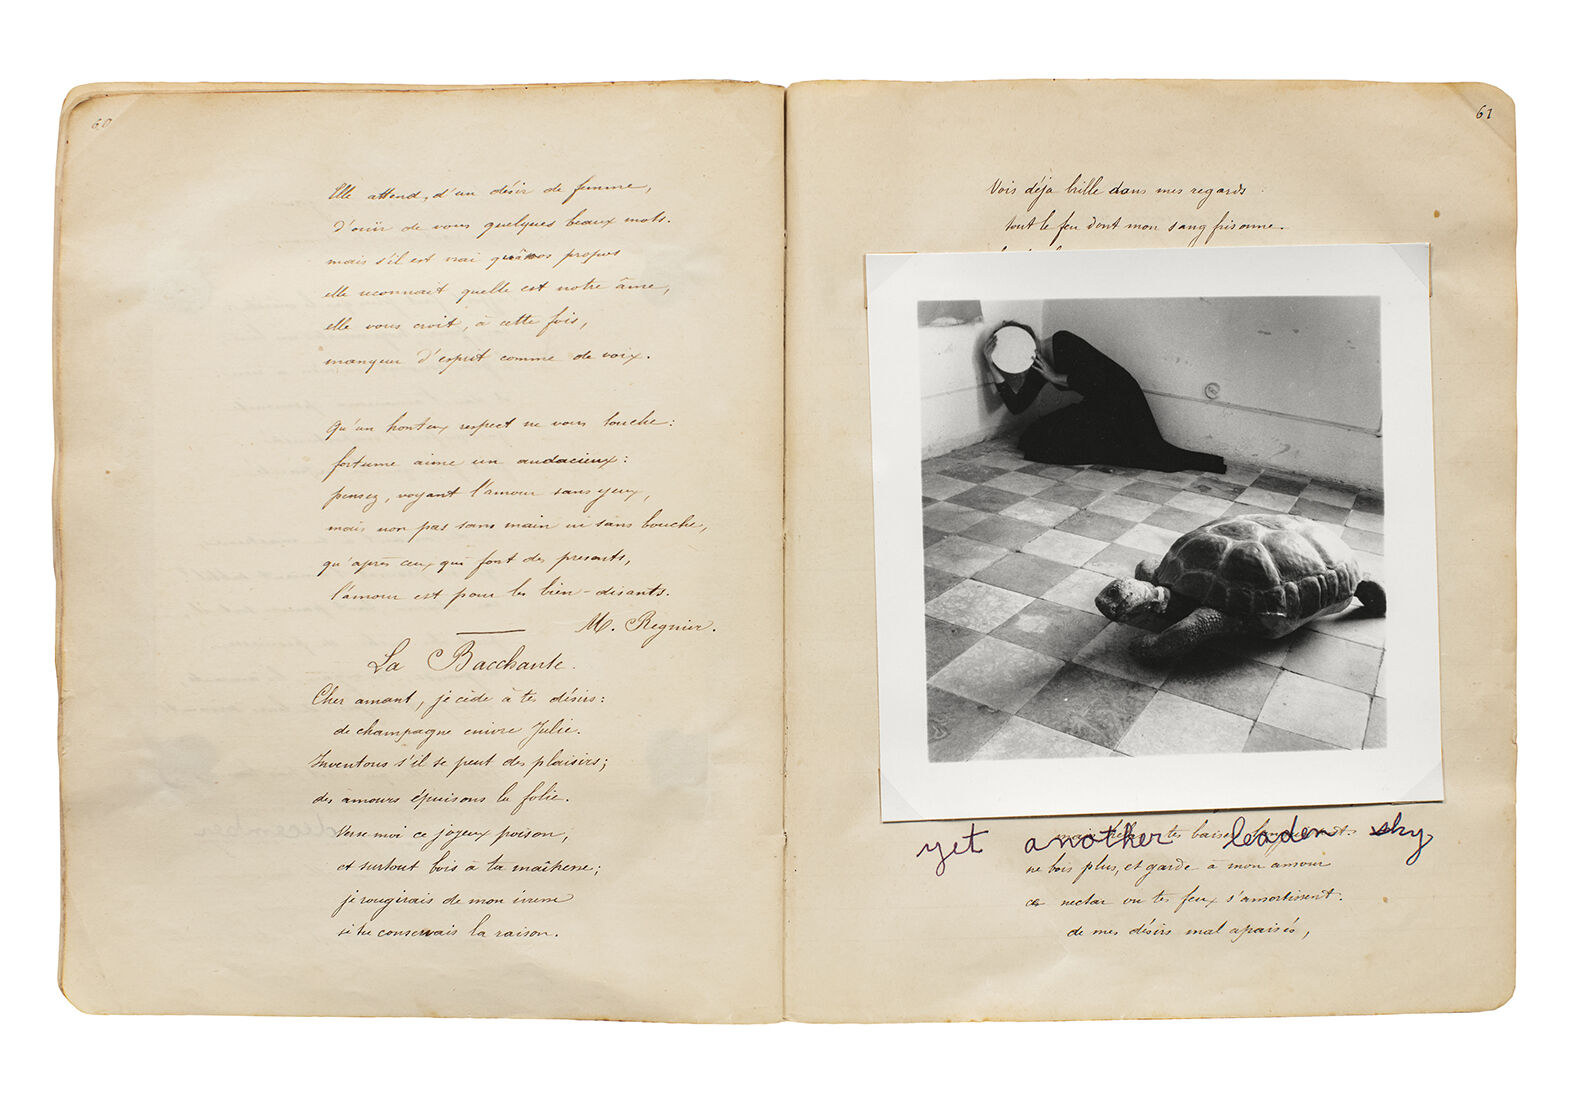 60
Elle attend, d'un désir de femme,
d'ouïr de vous quelques beaux mots.
mais s'il est vrai qu'à nos propos
elle reconnait quelle est notre âme,
elle vous croit, à cette fois,
manquer d'esprit comme de voix.
Qu'un honteux respect ne vous touche:
fortune aime un audacieux:
pensez, voyant l'amour sans yeux,
mais non pas sans main ni sans bouche,
qu'après ceux qui font des presents,
l'amour est pour les bien-disants.
M. Regnier.
La Bacchante.
Cher amant, je cède à tes désirs:
de champagne enivre Julie.
Inventons s'il se peut des plaisirs;
des amours épuisons la folie.
Verse moi ce joyeux poison,
et surtout bois à ta maîtresse;
je rougirais de mon ivresse
si tu conservais la raison.
61
Vois déja brille dans mes regards
tout le feu dont mon sang frisonne.
yet another leaden sky
mais tes baisers
ne bois plus, et garde à mon amour
ce nectar ou tes feux s'amortissent.
de mes désirs mal apaisés,